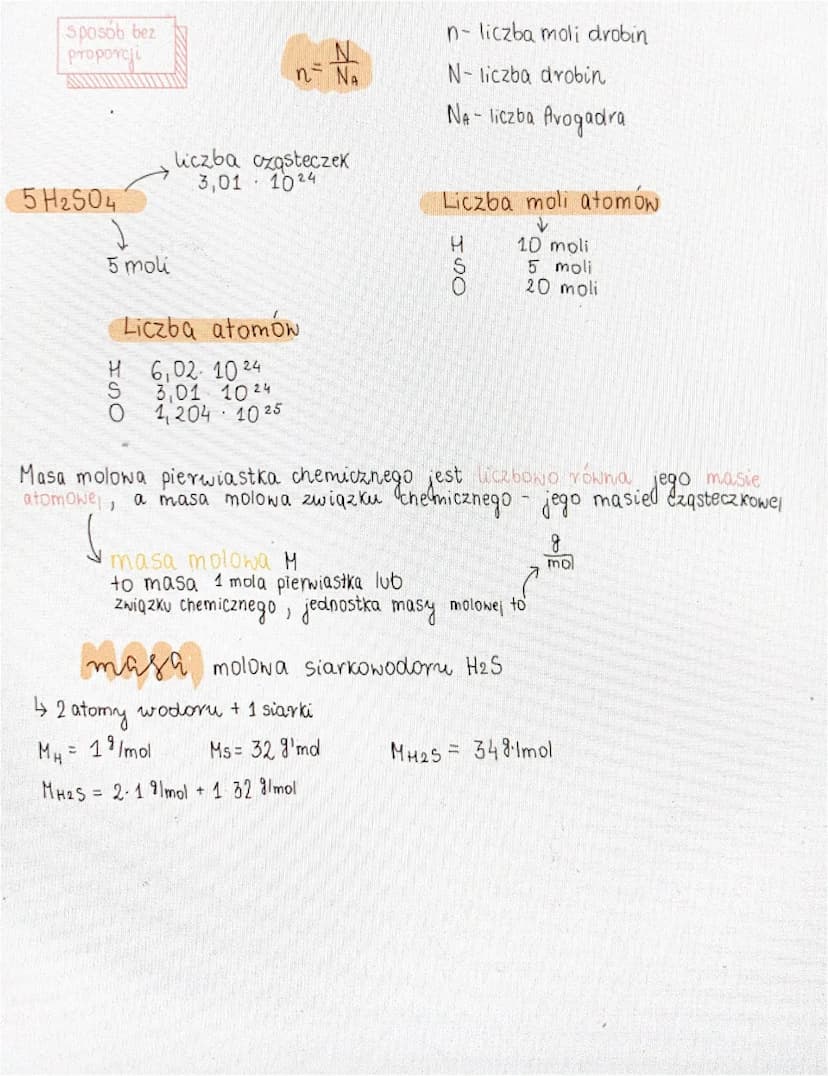 sposób bez
proporcji
n = N/NA
n - liczba moli drobin
N - liczba drobin
NA - liczba Avogadra
liczba cząsteczek
3,01 · 10²⁴
5 H2SO4
5 moli
Liczba moli atomów
H 10 moli
S 5 moli
O 20 moli
Liczba atomów
H 6,02 · 10²⁴
S 3,01 10²⁴
O 1,204 · 10²⁵
Masa molowa pierwiastka chemicznego jest liczbowo równa jego masie
atomowej, a masa molowa związku chemicznego - jego masie cząsteczkowej
masa molowa M
to masa 1 mola pierwiastka lub
związku chemicznego, jednostka masy molowej to
g/mol
masa molowa siarkowodoru H2S
↳ 2 atomy wodoru + 1 siarki
MH = 1 g/mol MS = 32 g/mol MH2S = 34 g/mol
MH2S = 2·1 g/mol + 1 32 g/mol